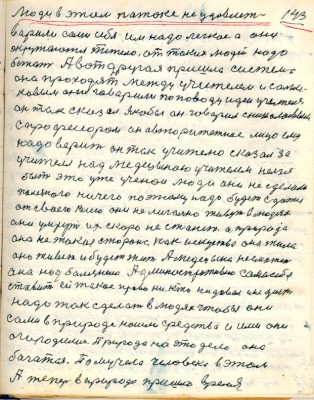 Люди в этом потоке не удовлет- 143
варили сами себя им надо легкое а они
окружаются тяжело. от таких людей надо
бежать А вот другая пришла система
она проходят между учителем и
они говорили по поводу идеи учителя
он так сказал якобы он говорил
с профессором он авторитетное лицо ему
надо верит он так учителю сказал за
учителя над Медециною учителем нельзя
быть это уже ученои люди они не сделали
полезного ничего поэтому надо будет сдатся
от своего кто они не легально живут в людях
они умрут их скоро не станит. а природа
она не такая сторона, как искуство она жила
она живет и будет жить А Медецина не
она над болезнию Административно само себя
ставит ей такое право никто не давал
надо так сделат в людях чтобы они
сами в природе нашли средства и ими они
огородились Природа на это дело она
богатая. Помучила человека в этом
А тепер в природе пришло время